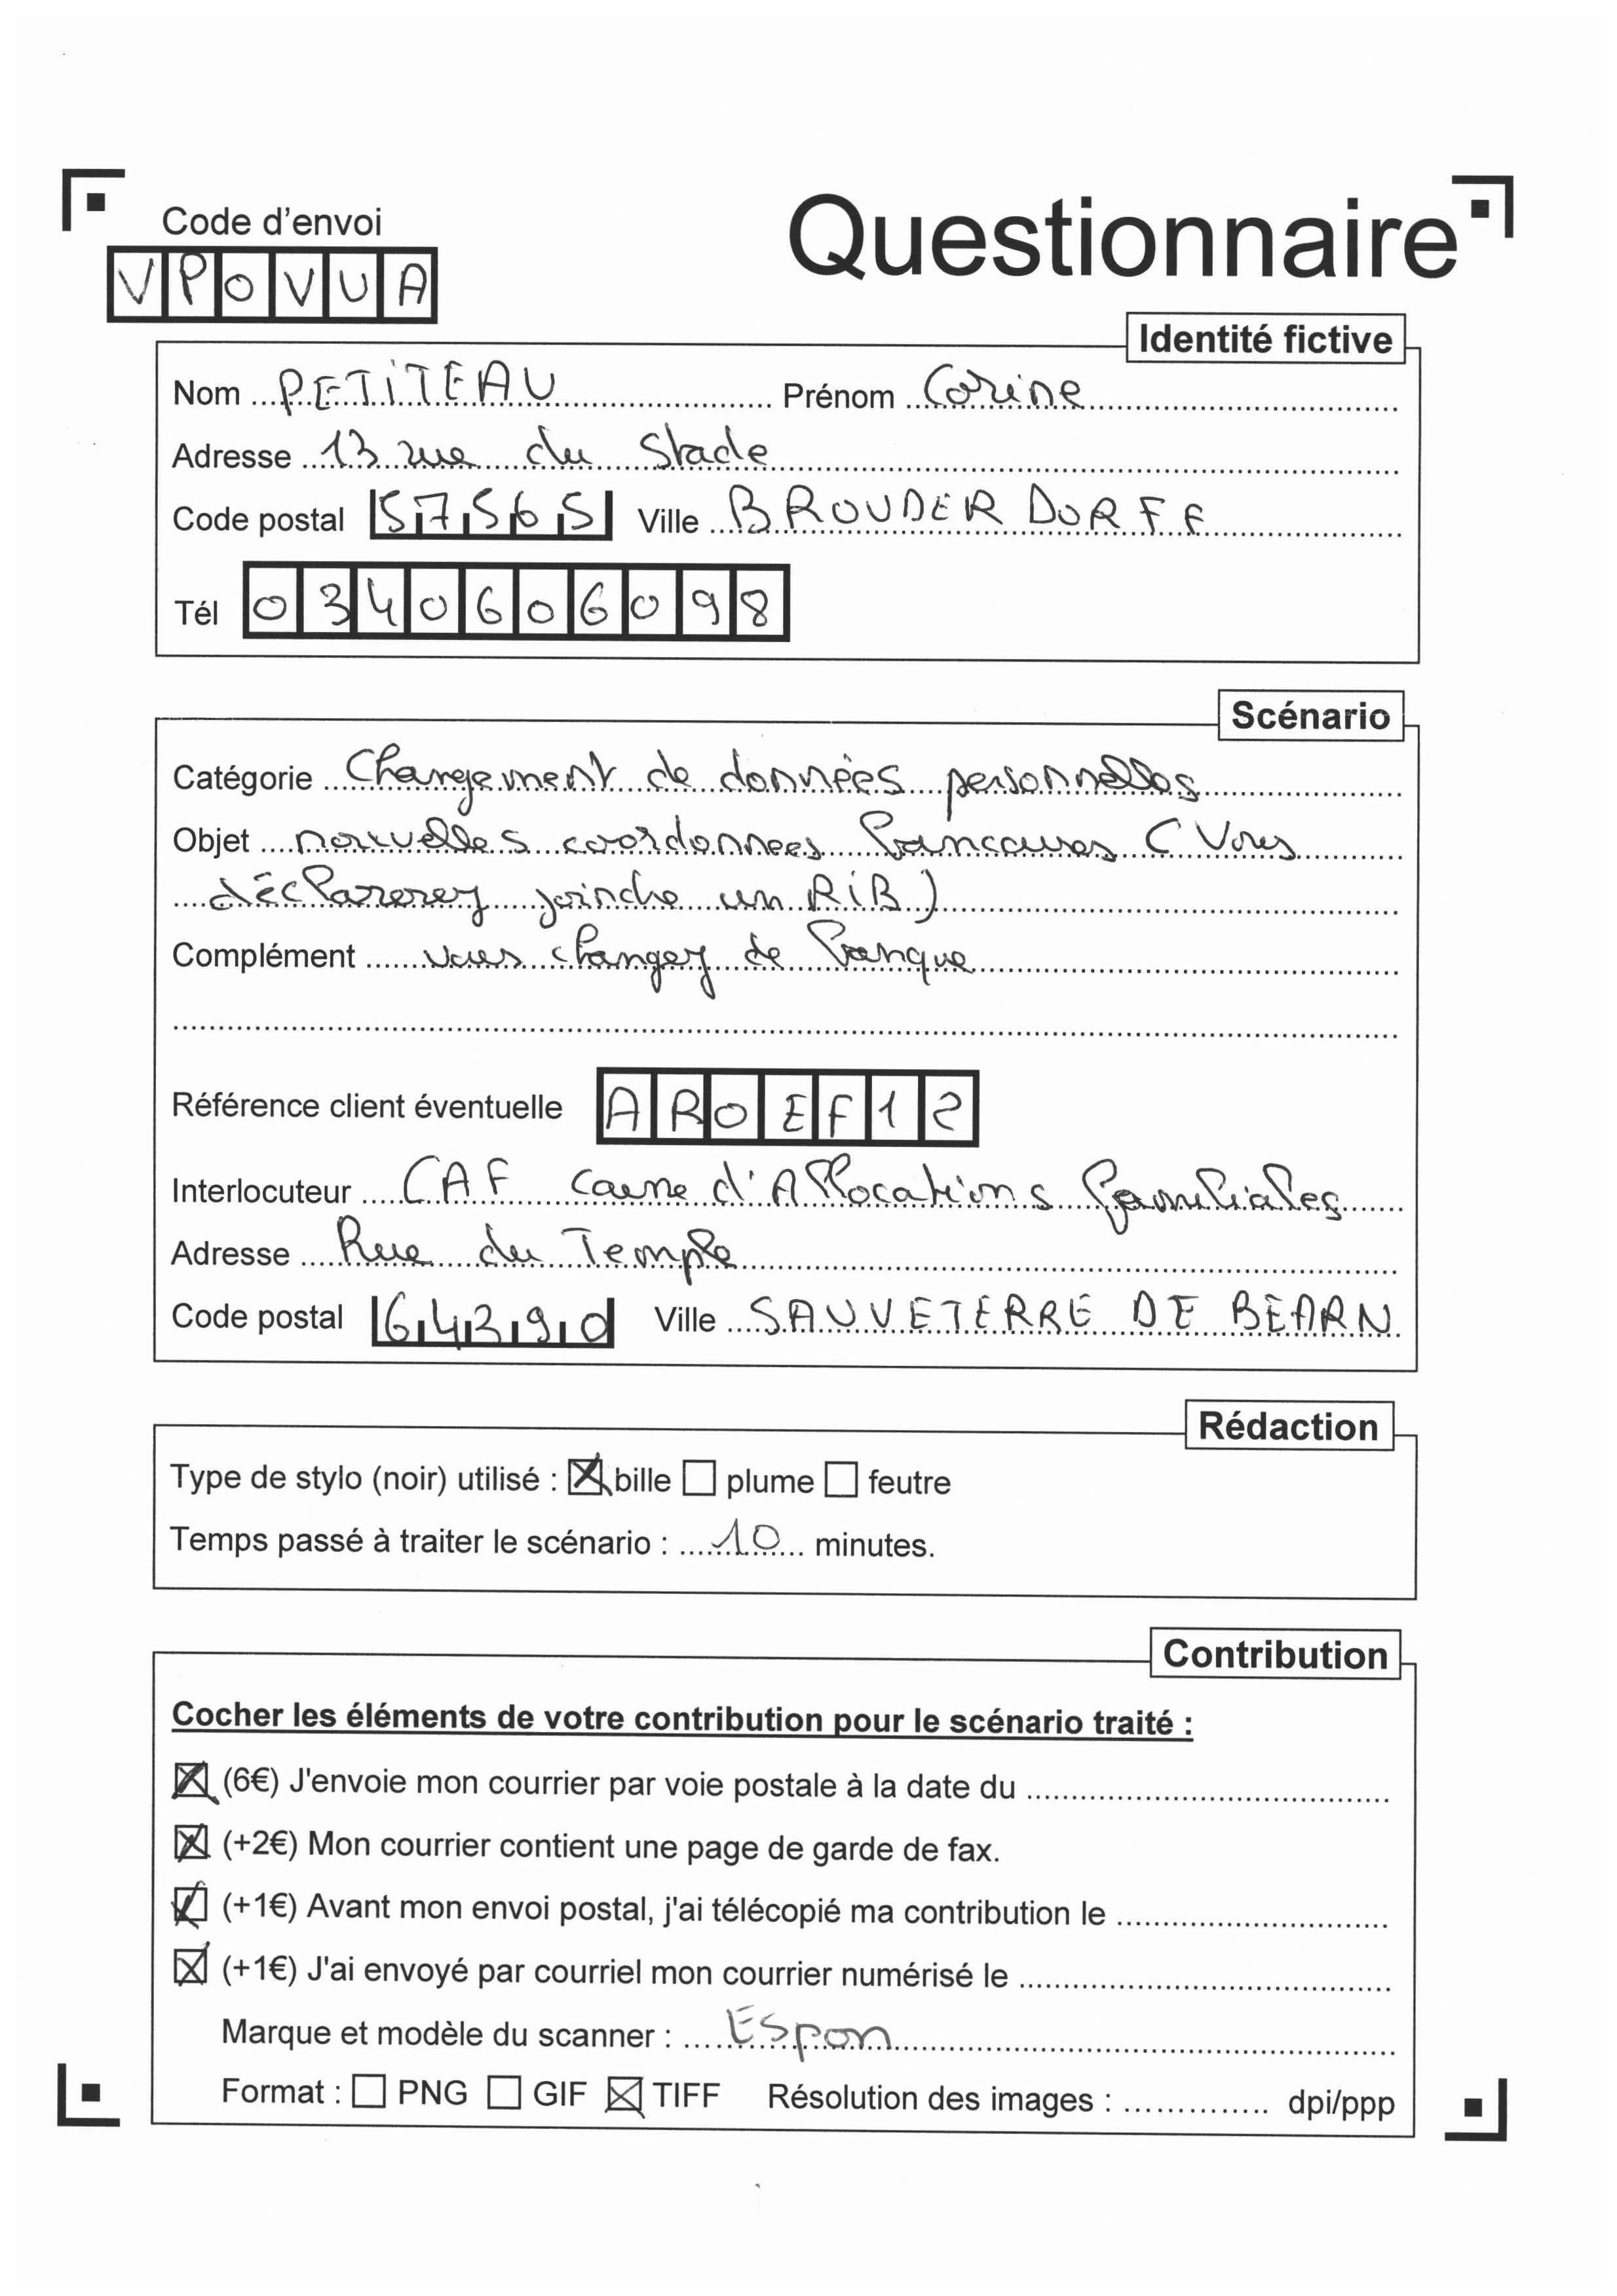 Code d'envoi
Questionnaire
VPOVUA
Identité fictive
Nom PETITEAU Prénom Corine
Adresse 13 rue du Stade
Code postal 57565 Ville BROUDERDORFF
Tél 0340606098
Scénario
Catégorie Changement de données personnelles
Objet nouvelles coordonnees bancaires (Vous
déclarerez joindre un RIB)
Complément vous changez de banque
Référence client éventuelle AROEF12
Interlocuteur CAF Caisse d'Allocations familiales
Adresse Rue du Temple
Code postal 64390 Ville SAUVETERRE DE BEARN
Rédaction
Type de stylo (noir) utilisé : ☒ bille ☐ plume ☐ feutre
Temps passé à traiter le scénario : 10 minutes.
Contribution
Cocher les éléments de votre contribution pour le scénario traité :
☒ (6€) J'envoie mon courrier par voie postale à la date du
☒ (+2€) Mon courrier contient une page de garde de fax.
☒ (+1€) Avant mon envoi postal, j'ai télécopié ma contribution le
☒ (+1€) J'ai envoyé par courriel mon courrier numérisé le
Marque et modèle du scanner : Espon
Format : ☐ PNG ☐ GIF ☒ TIFF Résolution des images : dpi/ppp